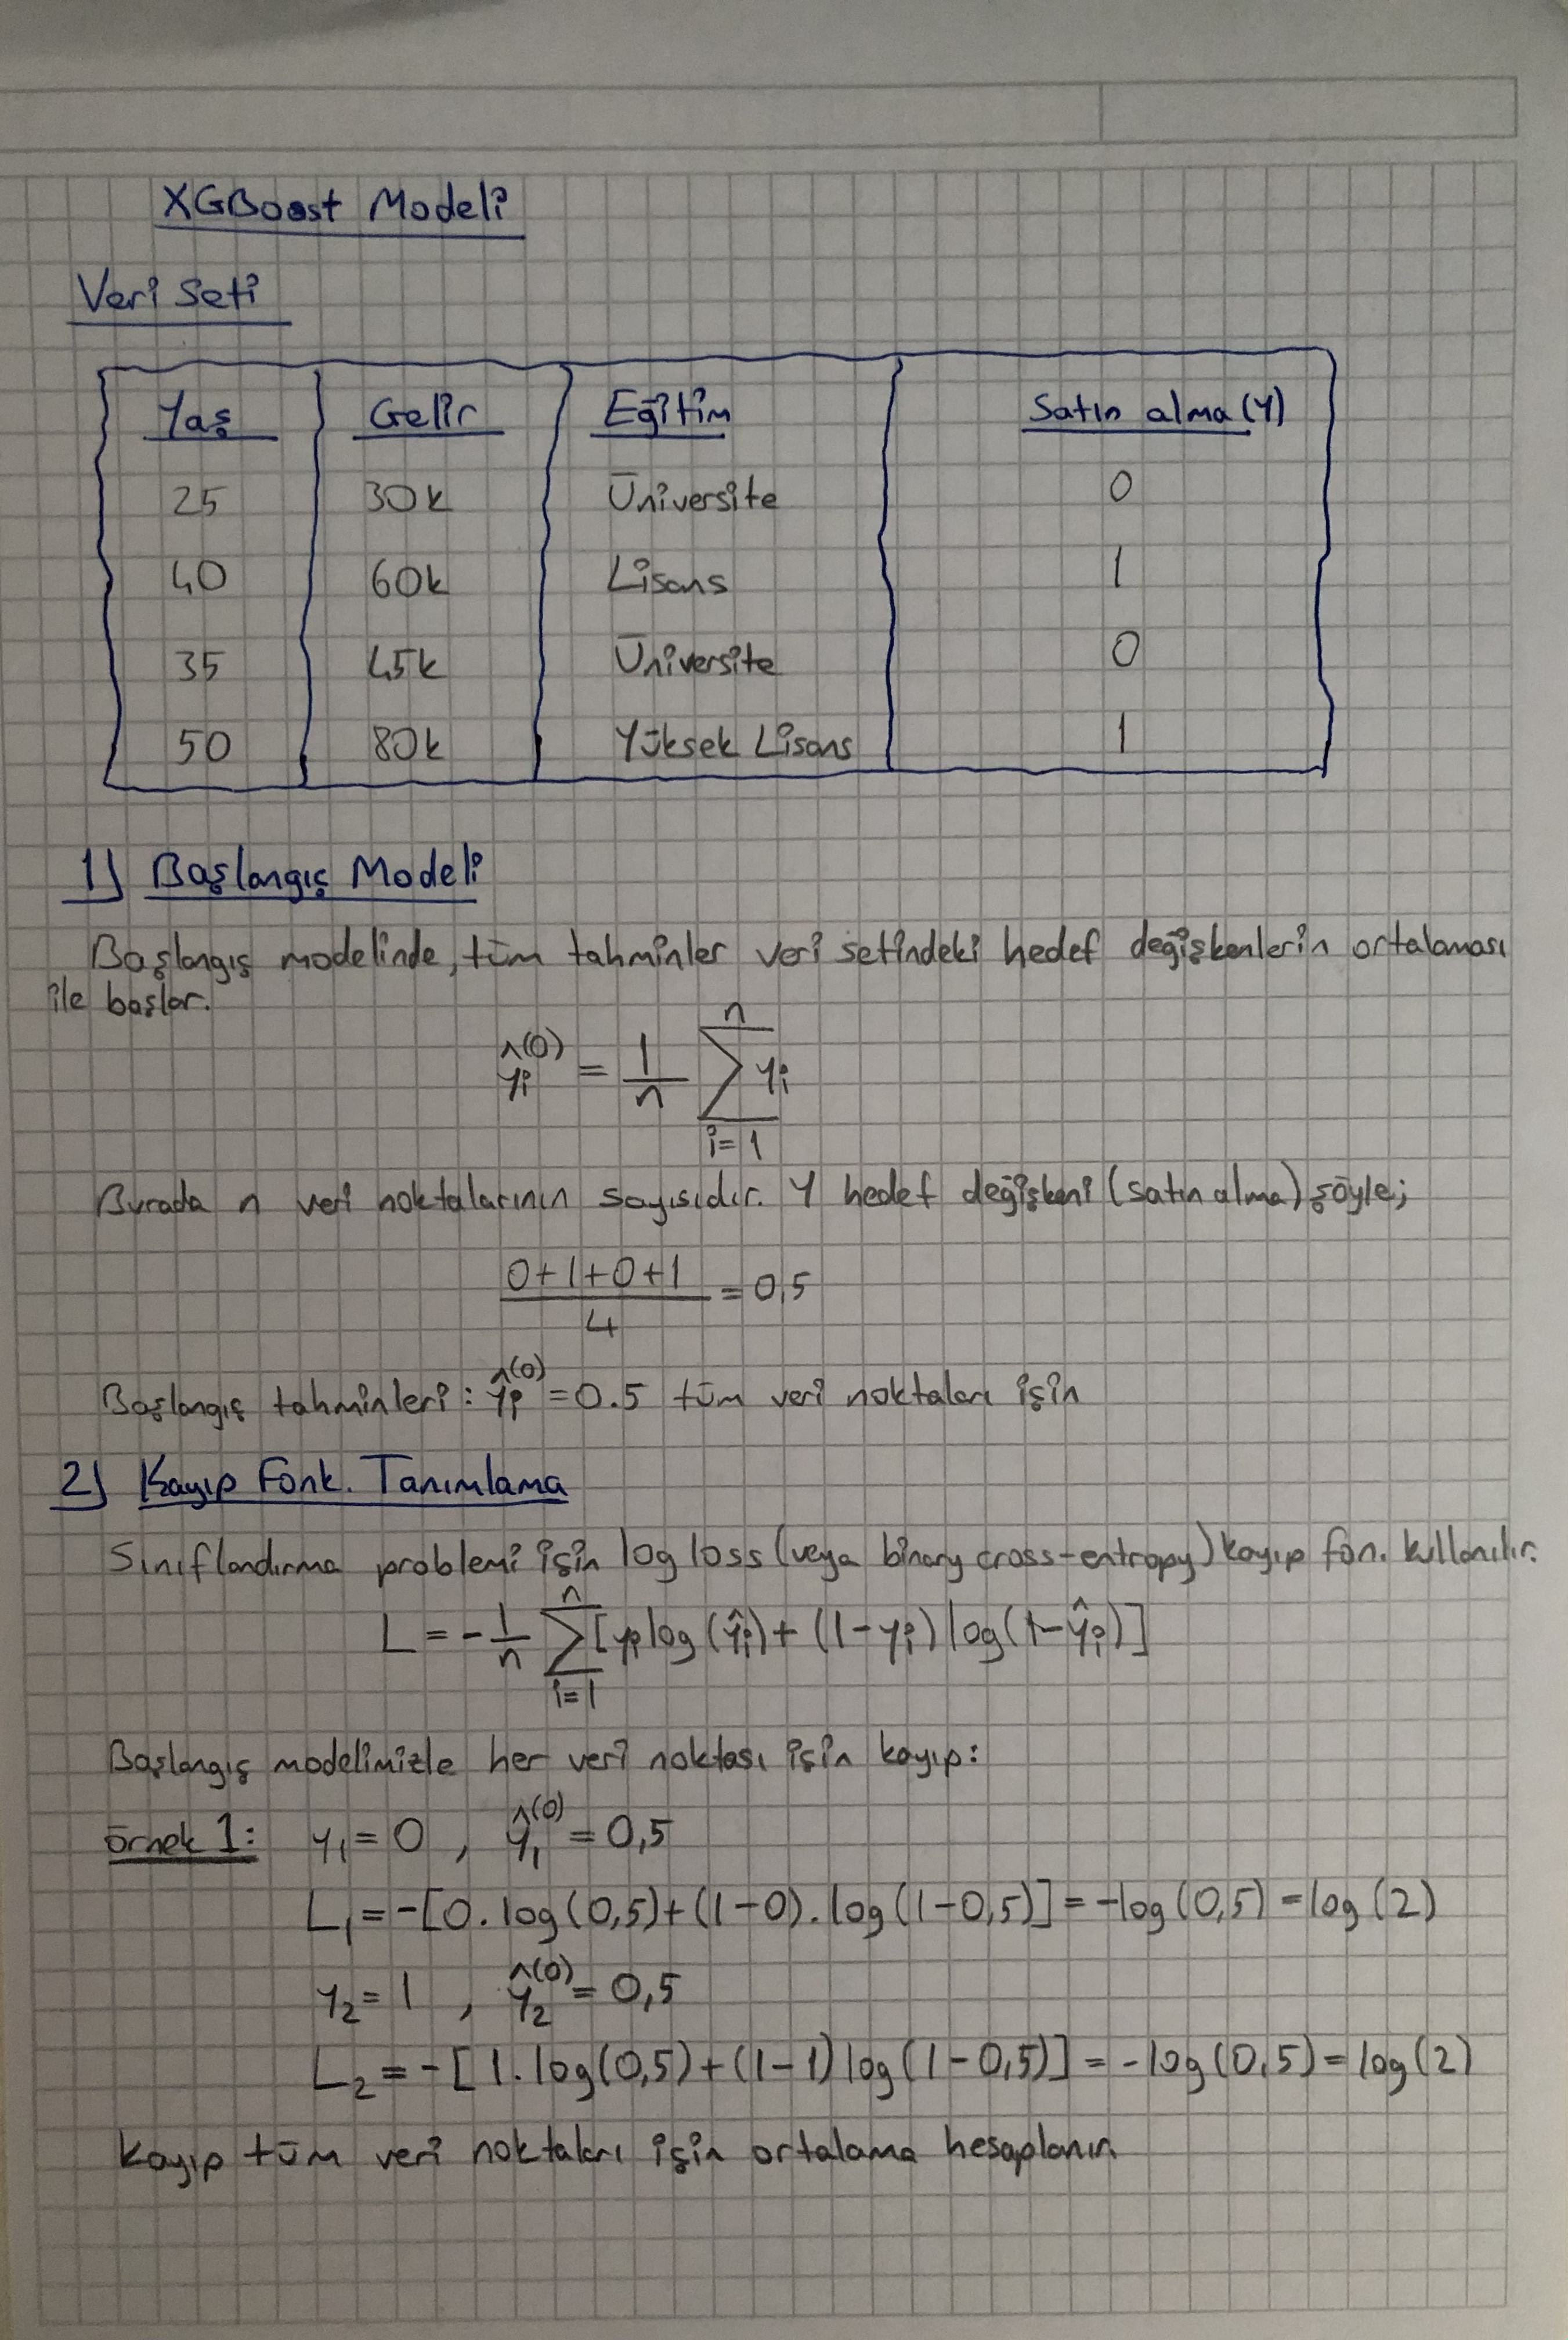 XGBoost Modeli
Veri Seti
Yaş Gelir Eğitim Satın alma (Y)
25 30k Üniversite 0
40 60k Lisans 1
35 45k Üniversite 0
50 80k Yüksek Lisans 1
1) Başlangıç Modeli
Başlangıç modelinde, tüm tahminler veri setindeki hedef değişkenlerin ortalaması
ile başlar.
ŷᵢ⁽⁰⁾ = 1/n ∑ᵢ₌₁ⁿ yᵢ
Burada n veri noktalarının sayısıdır. Y hedef değişkeni (satın alma) şöyle;
(0+1+0+1)/4 = 0,5
Başlangıç tahminleri: ŷᵢ⁽⁰⁾ = 0.5 tüm veri noktaları için
2) Kayıp Fonk. Tanımlama
Sınıflandırma problemi için log loss (veya binary cross-entropy) kayıp fon. kullanılır.
L = -1/n ∑ᵢ₌₁ⁿ [yᵢ log(ŷᵢ) + (1-yᵢ) log(1-ŷᵢ)]
Başlangıç modelimizle her veri noktası için kayıp:
Örnek 1: y₁ = 0 , ŷ₁⁽⁰⁾ = 0,5
L₁ = -[0.log(0,5)+(1-0).log(1-0,5)] = -log(0,5) = log(2)
y₂ = 1 , ŷ₂⁽⁰⁾ = 0,5
L₂ = -[1.log(0,5)+(1-1)log(1-0,5)] = -log(0,5) = log(2)
Kayıp tüm veri noktaları için ortalama hesaplanır.